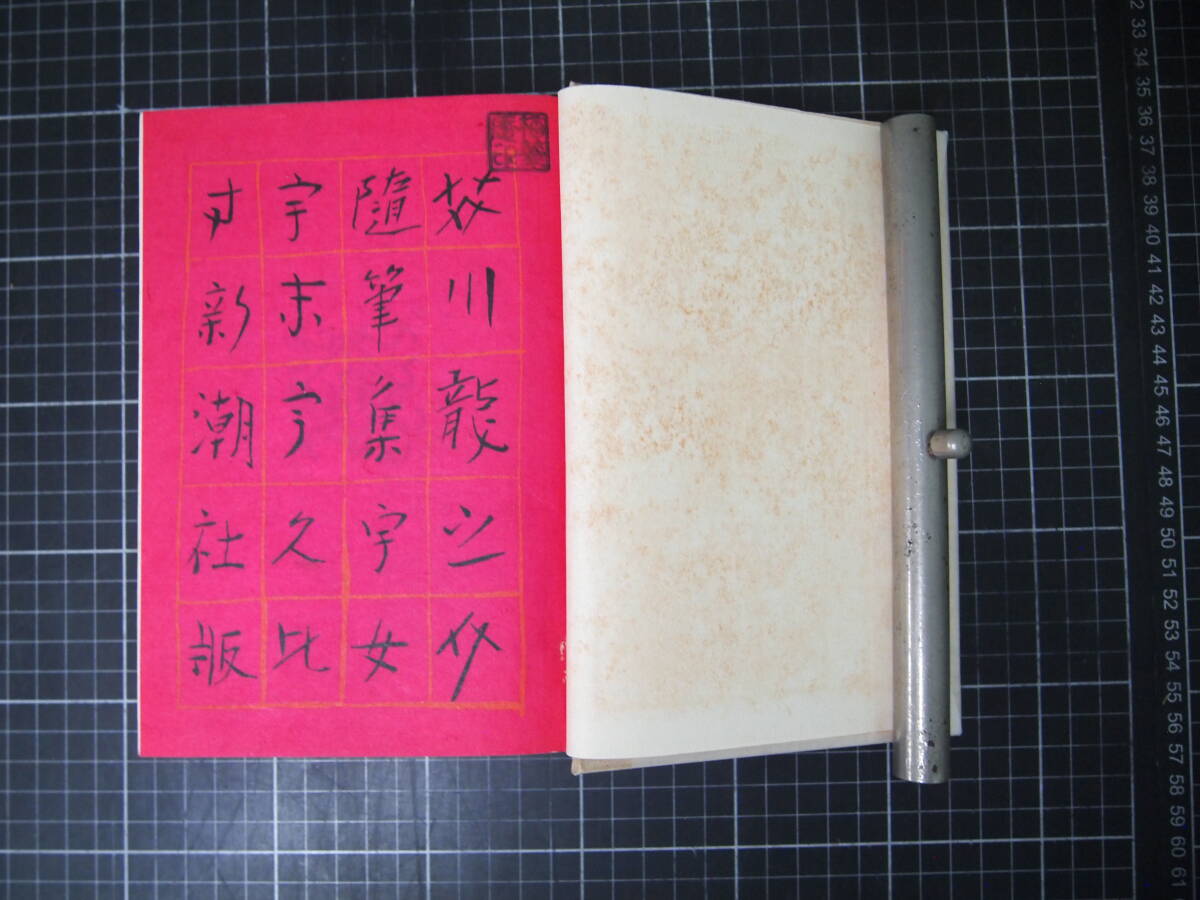 芥川龍之介
隨筆集宇女
宇末宇久比
寸新潮社版
33 34 35 36 37 38 39 40 41 42 43 44 45 46 47 48 49 50 51 52 53 54 55 56 57 58 59 60 61